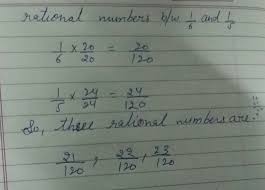 rational numbers b/w 1/6 and 1/5
1/6 × 20/20 = 20/120
1/5 × 24/24 = 24/120
So, three rational numbers are:
21/120, 22/120, 23/120